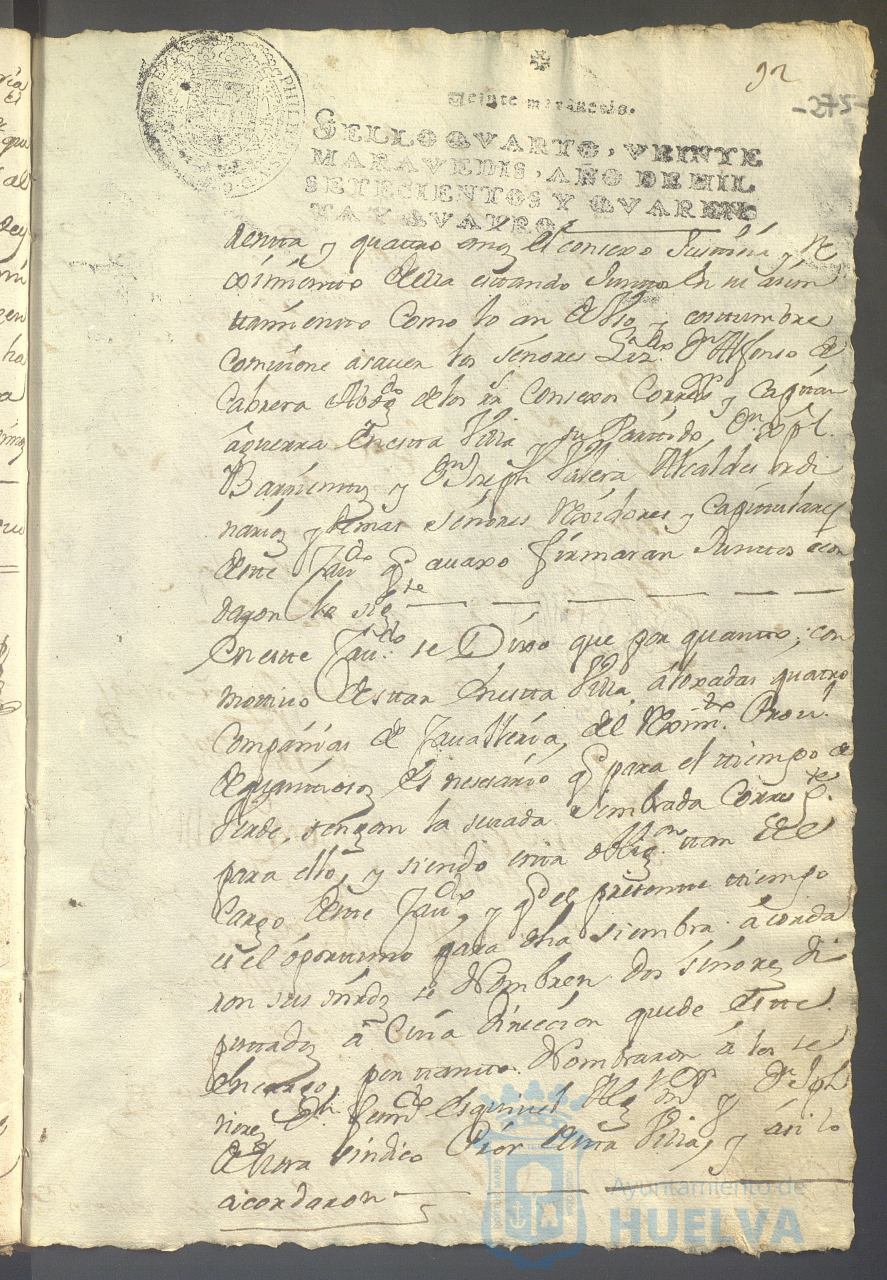 92
-372-
Veinte maravedis.
SELLO QVARTO, VEINTE
MARAVEDIS, AÑO DE MIL
SETECIENTOS Y QVAREN
TA Y QVATRO.
renta y quatro años el consexo Justicia y Re
ximiento della estando Juntos en su aiun
tamiento Como lo an de Uso y costumbre
comviene á saver los señores Liz.do Dn Alfonso de
Cabrera Abogdo de los rs Consexos Corregor y Capitan
á guerra en esta Villa y su Partido Dn Xptl.
Barrientos y Dn Joseph Alcaldes ordi
narios y demas señores Rexidores y Capitulares
deste Cavdo q avaxo firmaran Juntos acor
daron lo sigte
En este Cavdo. se Dixo que por quanto, con
mottivo de estar en esta Villa áloxadas quatro
Compañias de Cavalleria, del Reximto. Prov.l
de es nesesario q para el tiempo de
Verde, tengan la sevada sembrada Correspte.
para ello, y siendo esta obligon tan del
Cargo deste Cavdo, y qe el presente tiempo
es el óportuno para dha siembra ácorda
ron sus mrds se Nombren dos señores di
putados á Cuia direccion quede este
encargo, por tanto Nombraron á los se
ñores Dn Fernd esquivel Alg Mr y Dn Jph
sindico Pror desta Villa, y ási lo
acordaron
Ayuntamiento de
HUELVA